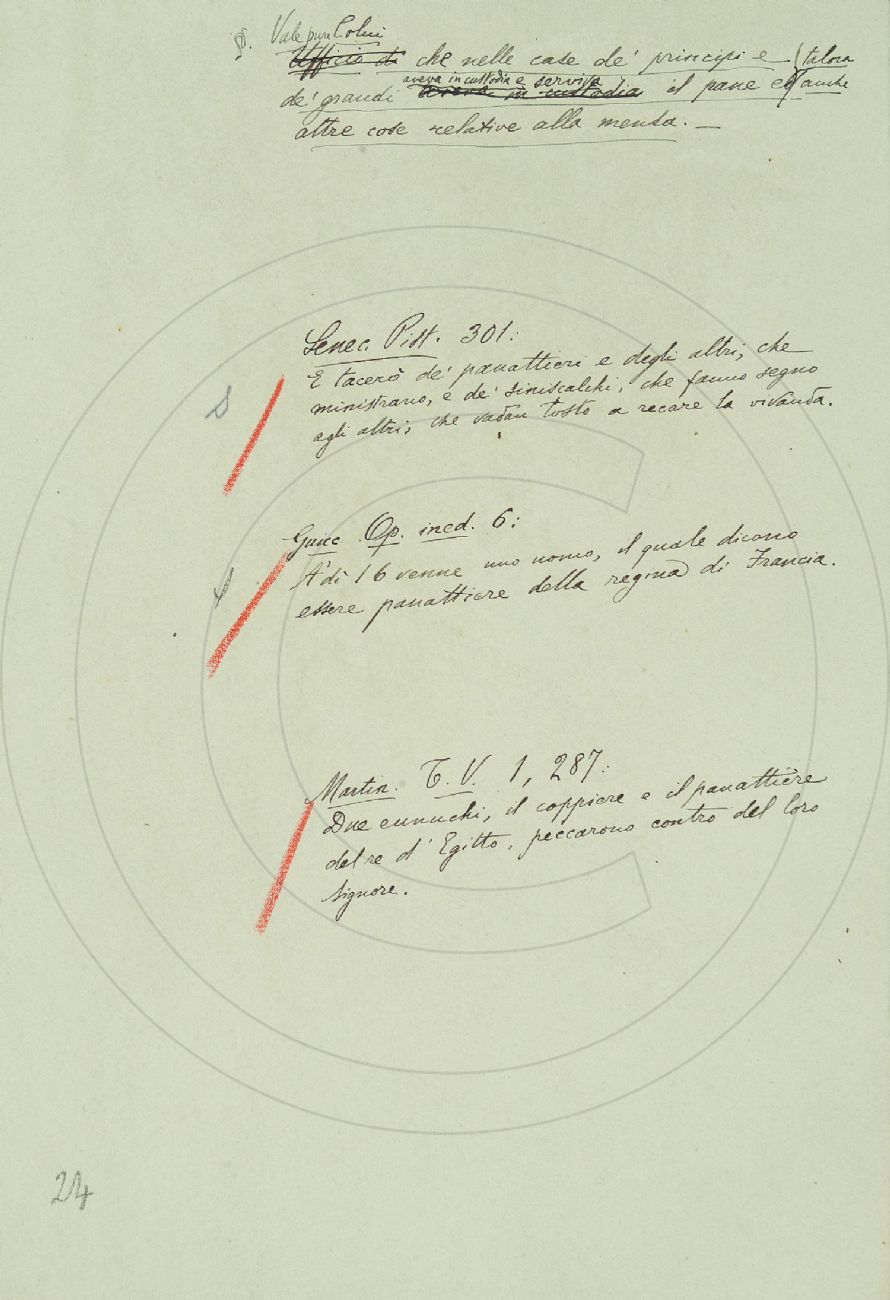 §. Vale pure Colui
Ufficio di che nelle case de' principi e talora
aveva in custodia e serviva
de' grandi aveva in custodia il pane ed anche
altre cose relative alla mensa. —
Senec. Pist. 301:
E tacerò de' panattieri e degli altri, che
ministrano, e de' siniscalchi, che fanno segno
agli altri, che vadan tosto a recare la vivanda.
Guicc. Op. ined. 6:
A' dì 16 venne uno uomo, il quale dicono
essere panattiere della regina di Francia.
Martin. T. V. 1, 287:
Due eunuchi, il coppiere e il panattière
del re d' Egitto, peccarono contro del loro
signore.
24